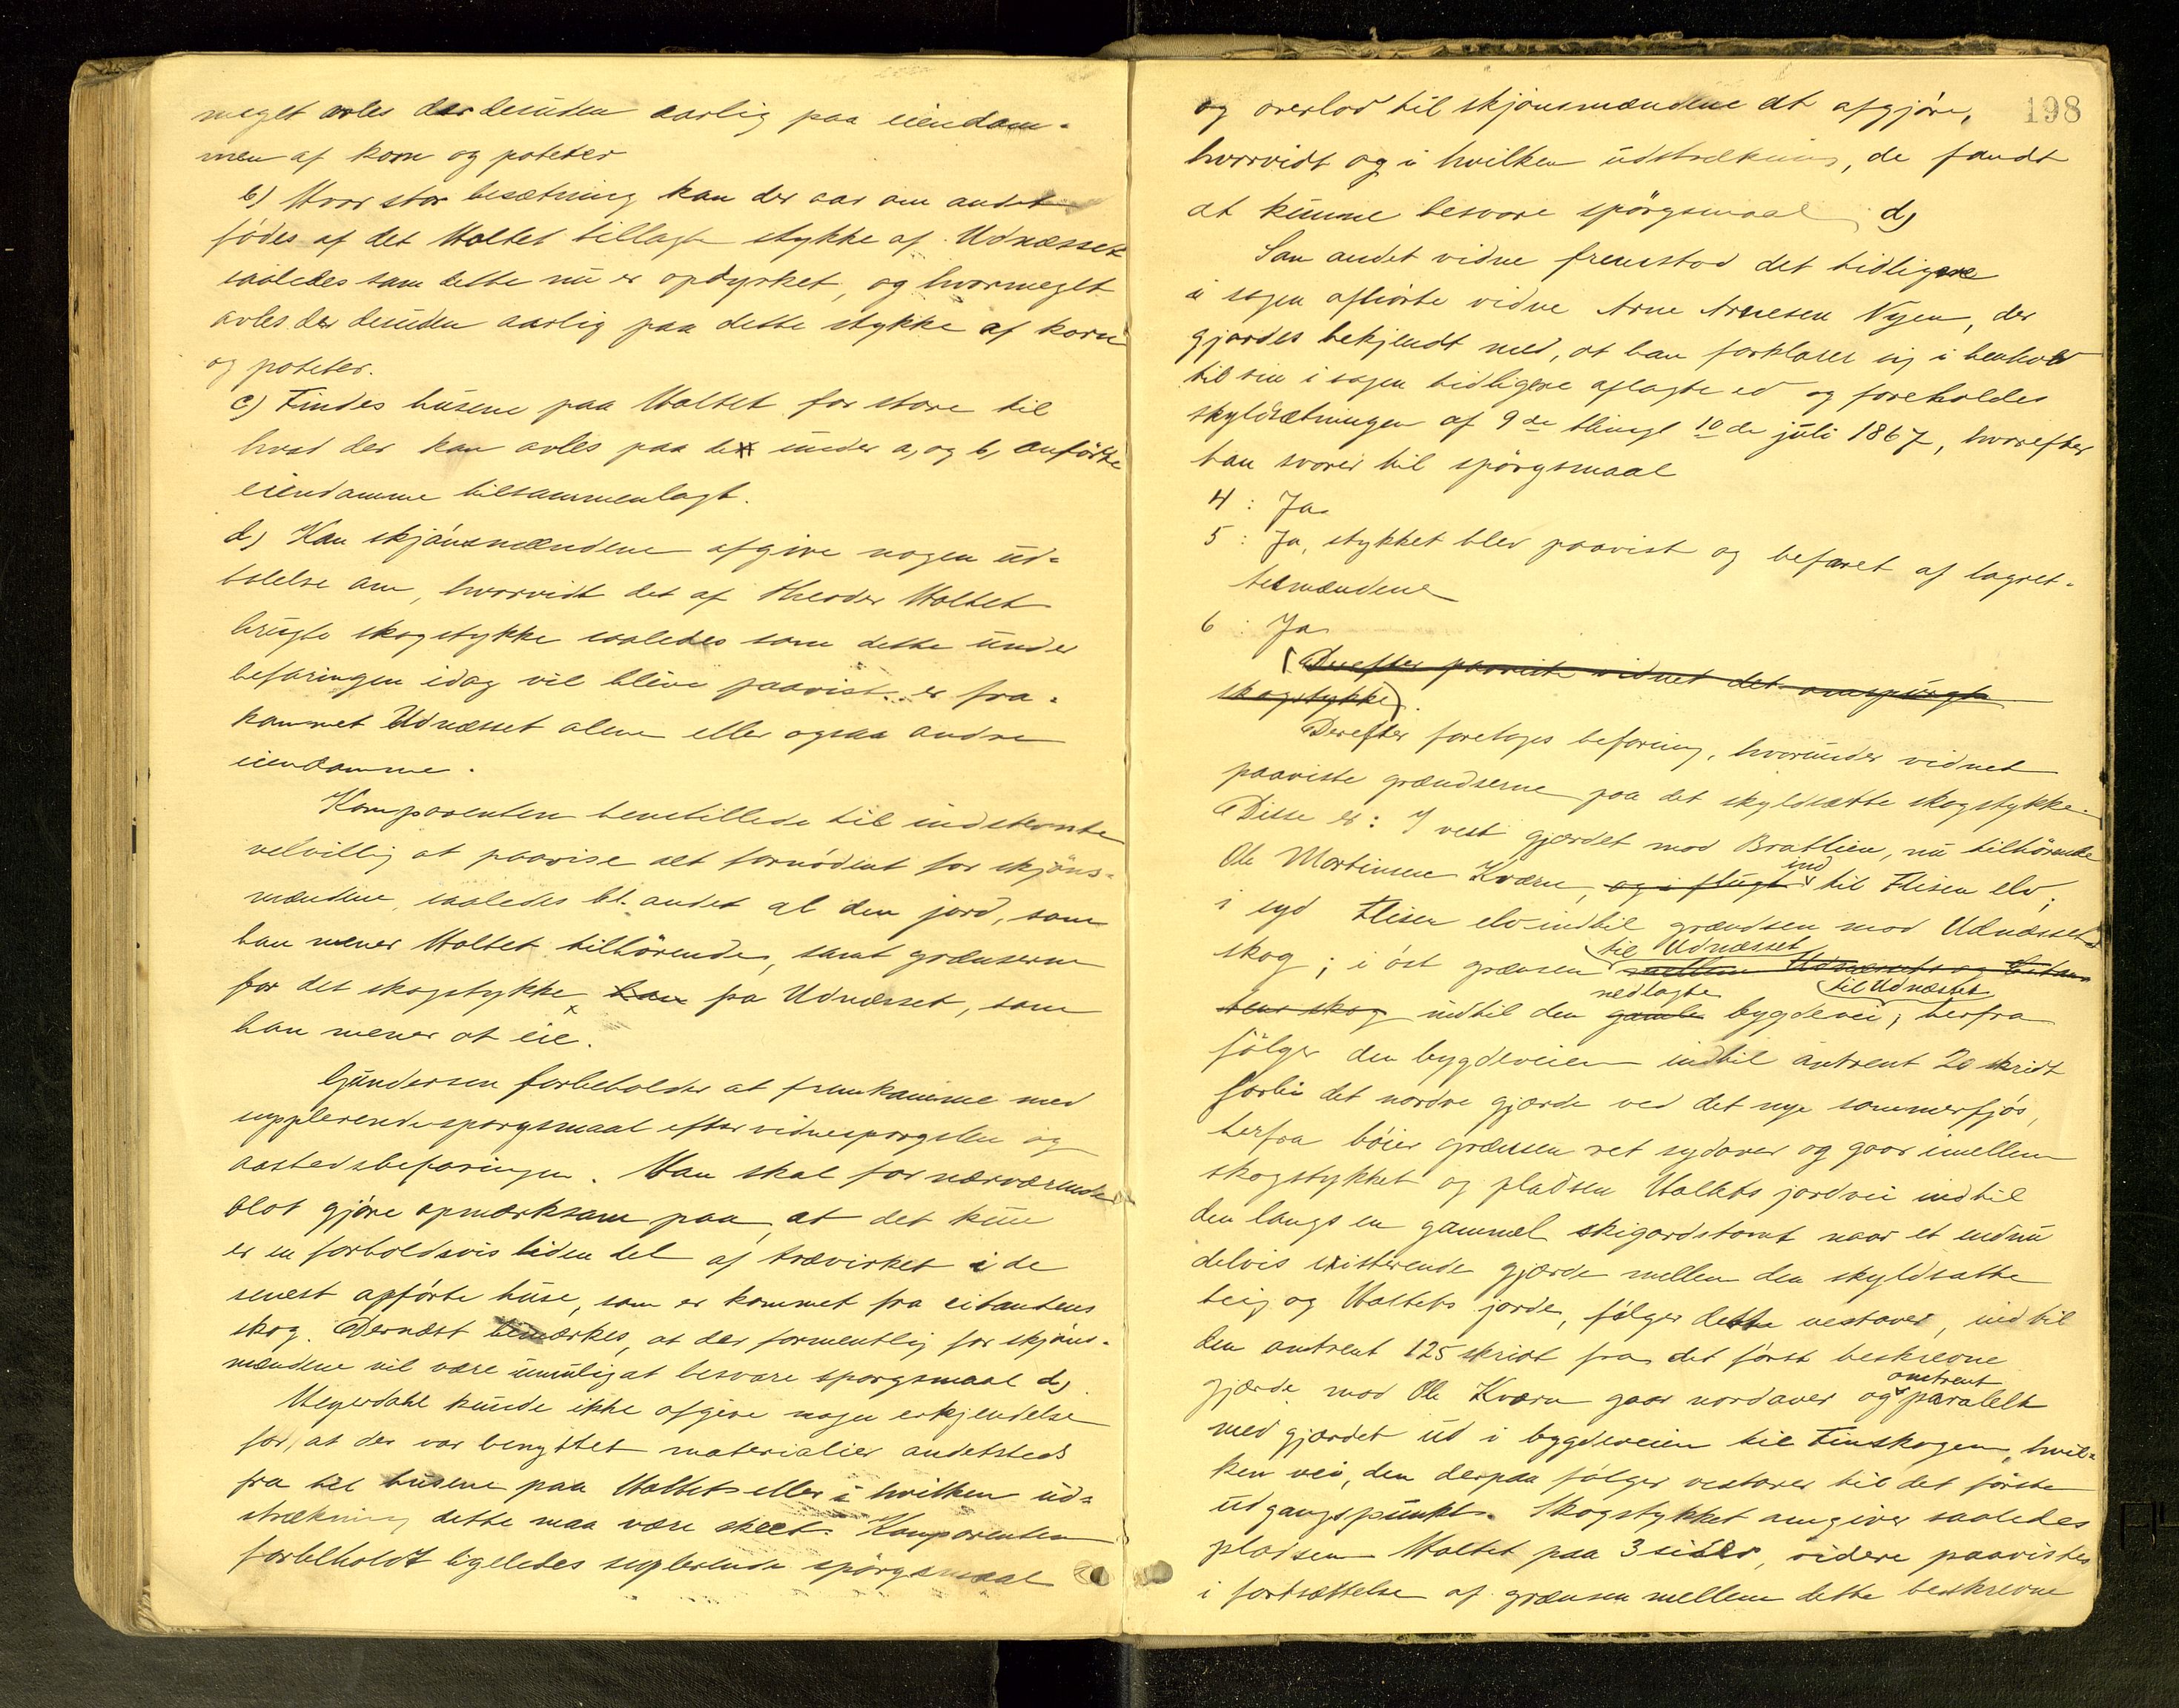 meget avles der desuden aarlig paa eiendom-
men af korn og poteter
b) Hvor stor besætning kan der aar om andet
fødes af det Holtet tillagte stykke af Udnæsset
saaledes som dette nu er opdyrket, og hvormeget
avles der desuden aarlig paa dette stykke af korn
og poteter.
c) Findes husene paa Holtet for store til
hvad der kan avles paa de under a, og b, anførte
eiendomme tilsammenlagt.
d) Kan skjønsmændene afgive nogen ud-
talelse om, hvorvidt det af Theodor Holtet
brugte skogstykke saaledes som dette under
befaringen idag vil blive paavist er fra-
kommet Udnæsset alene eller ogsaa andre
eiendomme.
Komparenten henstillede til indstevnte
velvillig at paavise alt fornødent for skjøns-
mændene, saaledes bl. andet al den jord, som
han mener Holtet tilhørende, samt grænserne
for det skogstykke han fra Udnæsset, som
han mener at eie.
Gundersen forbeholder at fremkomme med
supplerende spørgsmaal efter vidnespørgslen og
aastedsbefaringen. Han skal for nærværende
blot gjøre opmærksom paa, at det kun
er en forholdsvis liden del af trævirket i de
senest opførte huse, som er kommet fra citantens
skog. Dernæst bemærkes, at der formentlig for skjøns-
mændene vil være umulig at besvare spørgsmaal d,
Meyerdahl kunde ikke afgive nogen erkjendelse
for, at der var benyttet materialier andetsteds
fra til husene paa Holtet eller i hvilken ud-
strækning dette maa være skeet. Komparenten
forbeholdt ligeledes suplerende spørgsmaal
198
og overlod til skjønsmændene at afgjøre,
hvorvidt og i hvilken udstrækning, de fandt
at kunne besvare spørgsmaal d,
Som andet vidne fremstod det tidligere
i sagen afhørte vidne Arne Arnesen Nyen, der
gjordes bekjendt med, at han forklarer sig i henhold
til sin i sagen tidligere aflagte ed og foreholdes
skyldsætningen af 9de thingl 10de juli 1867, hvorefter
han svarer til spørgsmaal
4 : Ja
5 : Ja, stykket blev paavist og befaret af lagret-
tesmændene
6 : Ja
(Derefter paaviste vidnet det omspurgte
skogstykke).
Derefter foretages befaring, hvorunder vidnet
paaviste grændserne paa det skyldsatte skogstykke.
Disse er: I vest gjærdet mod Bratlien, nu tilhørende
Ole Martinsen Kværn, og i flugt ind til Flisen elv;
i syd Flisen elv indtil grændsen mod Udnæssets
skog; i øst grænsen til Udnæsset mellem Udnæssets og Citan-
tens skog indtil den gamle nedlagte bygdevei til Udnæsset, herfra
følger den bygdeveien indtil antrent 20 skridt
forbi det nordre gjærde ved det nye sommerfjøs,
herfra bøier grænsen ret sydover og gaar imellem
skogstykket og pladsen Holtets jordvei indtil
den langs en gammel skigardstomt naar et endnu
delvis existerende gjærde mellem den skyldsatte
teig og Holtets jorde, følger dette vestover, indtil
den omtrent 125 skridt fra det først beskrevne
gjærde mod Ole Kværn gaar nordover og omtrent paralelt
med gjærdet ud i bygdeveien til Finskogen, hvil-
ken vei, den derpaa følger vestover til det første
udgangspunkt. Skogstykket omgiver saaledes
pladsen Holtet paa 3 sider, videre paavistes
i fortsættelse af grænsen mellem dette beskrevne